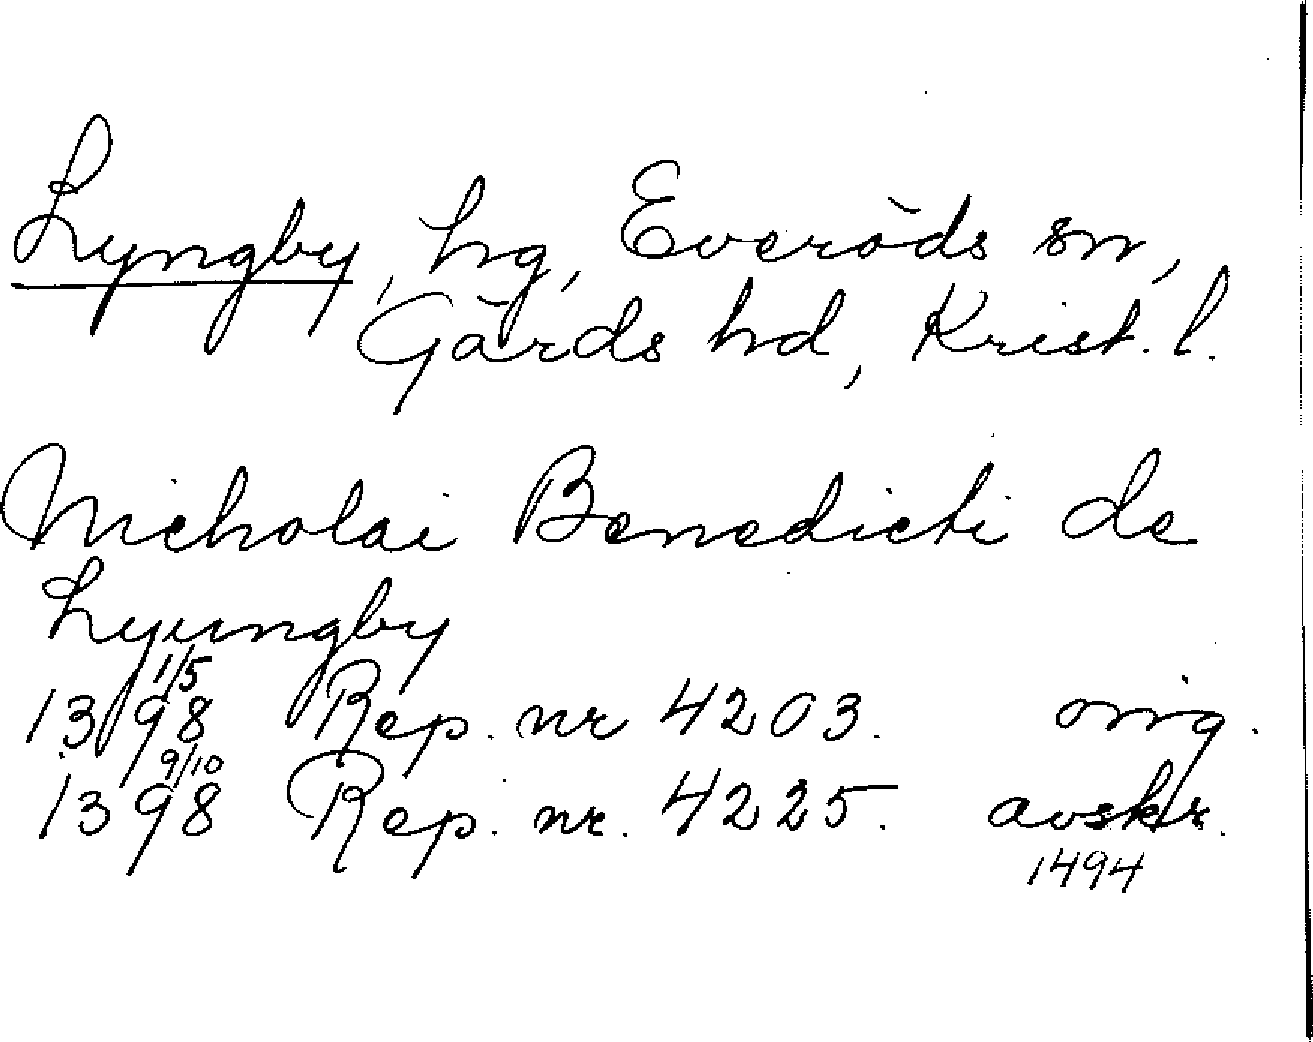 Lyngby, hg, Everöds sn,
Gärds hd, Krist. l.
Nicholai Benedicti de
Lyungby
1398 1/5 Rep. nr 4203. orig.
1398 9/10 Rep. nr. 4225. avskr.
1494